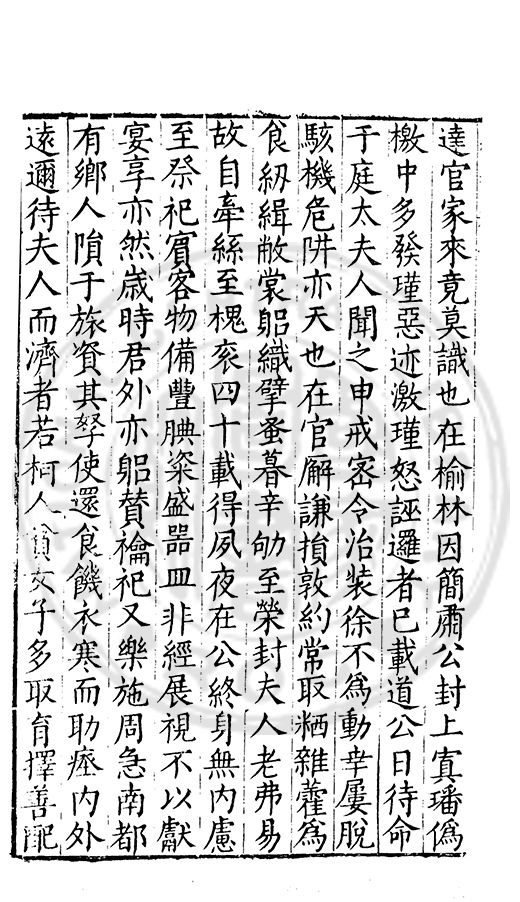 達官家來竟莫識也在榆林因簡肅公封上寘璠僞
檄中多發瑾惡迹激瑾怒誣邏者已載道公日待命
于庭太夫人聞之申戒宻令治裝徐不爲動幸屢脫
駭機危阱亦天也在官廨謙損敦約常取粞雜虀爲
食紉緝敝裳躳織擘蚤暮辛劬至榮封夫人老弗易
故自牽絲至槐衮四十載得夙夜在公終身無内慮
至祭祀賔客物備豐腆粢盛器皿非經展視不以獻
宴享亦然歳時君外亦躳賛禴祀又樂施周急南都
有鄉人隕于旅資其孥使還食饑衣寒而助瘞内外
遠邇待夫人而濟者若柯人貧女子多取育擇善配